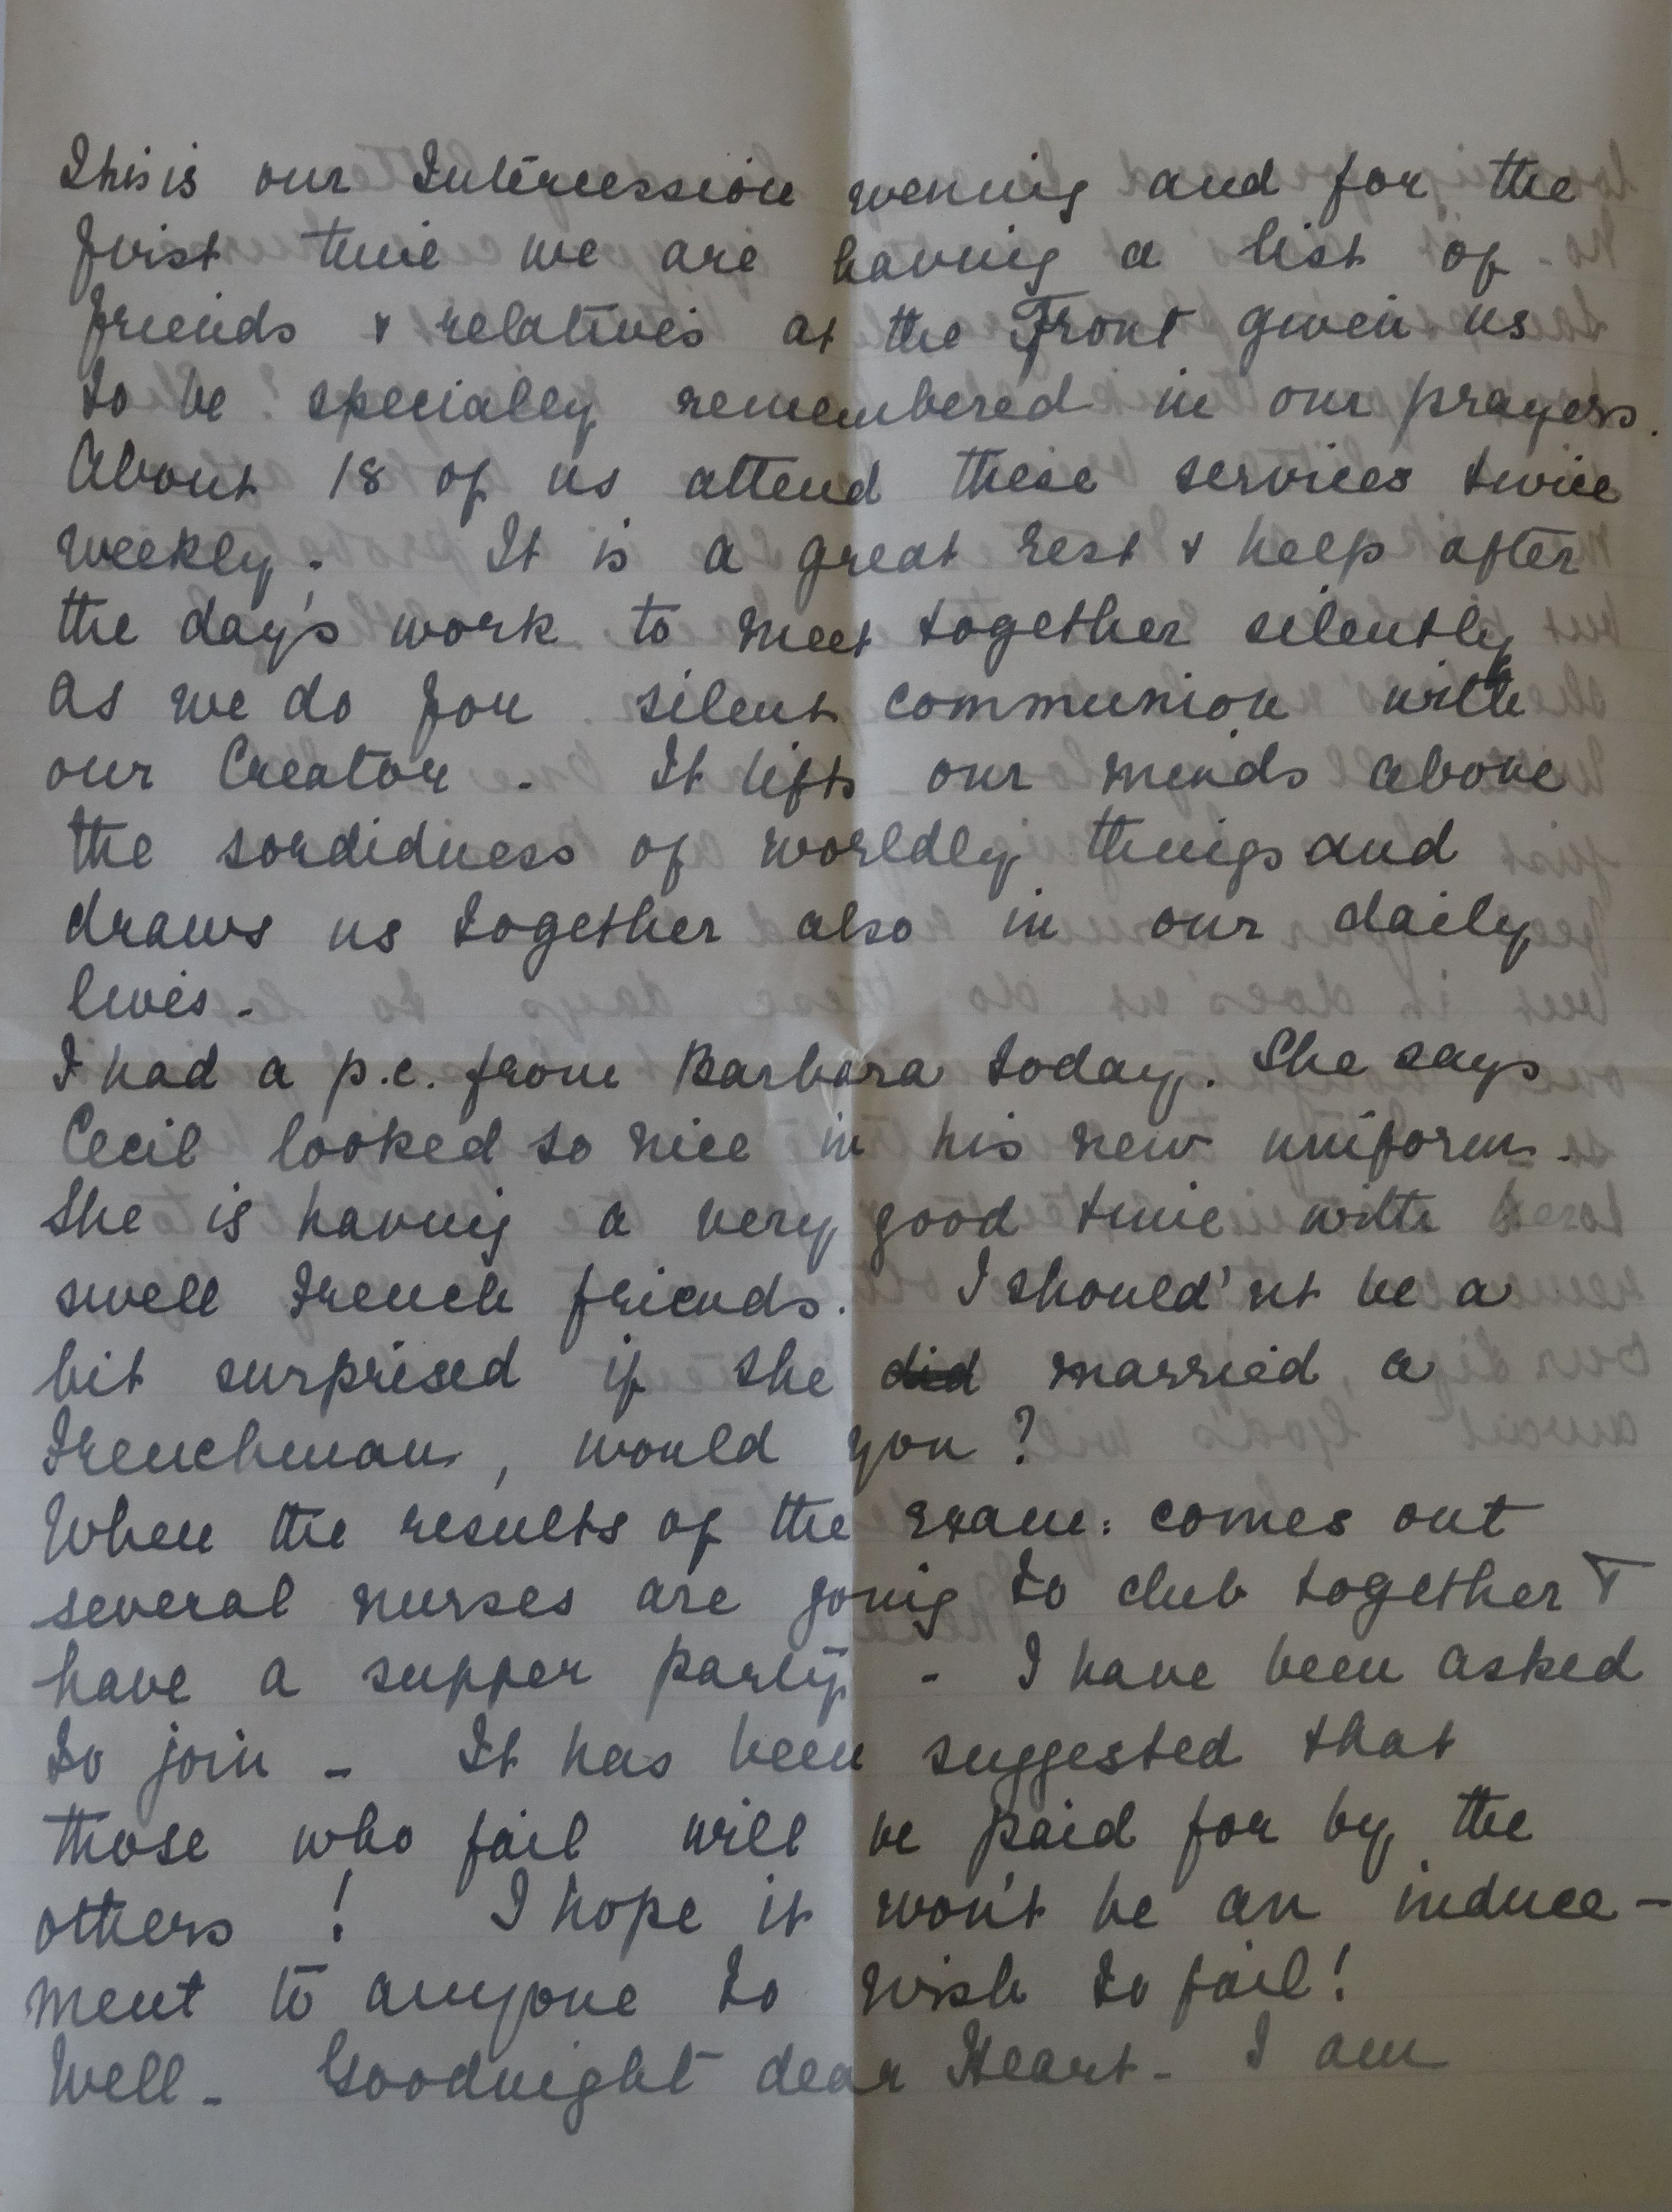 This is our Intercession evening and for the
first time we are having a list of
friends & relatives at the Front given us
to be specially remembered in our prayers.
About 18 of us attend these services twice
weekly. It is a great rest & help after
the day's work to meet together silently
as we do for silent communion with
our Creator - It lifts our minds above
the sordidness of worldly things and
draws us together also in our daily
lives -
I had a p.c. from Barbara today. She says
Cecil looked so nice in his new uniform -
She is having a very good time with
swell French friends. I should'nt be a
bit surprised if she did married a
Frenchman, would you?
When the results of the exam: comes out
several nurses are going to club together &
have a supper party - I have been asked
to join - It has been suggested that
those who fail will be paid for by the
others! I hope it won't be an induce-
ment to anyone to wish to fail!
Well - Goodnight dear Heart - I am